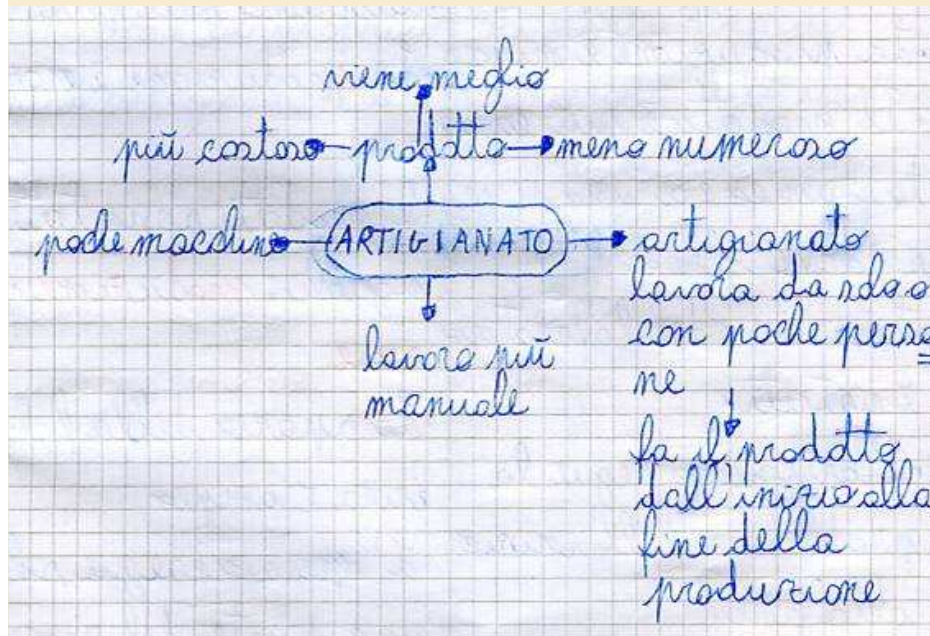 viene meglio
più costoso prodotto meno numeroso
poche macchine ARTIGIANATO artigianato
lavora da solo o
con poche perso
ne
lavoro più
manuale
fa il prodotto
dall'inizio alla
fine della
produzione